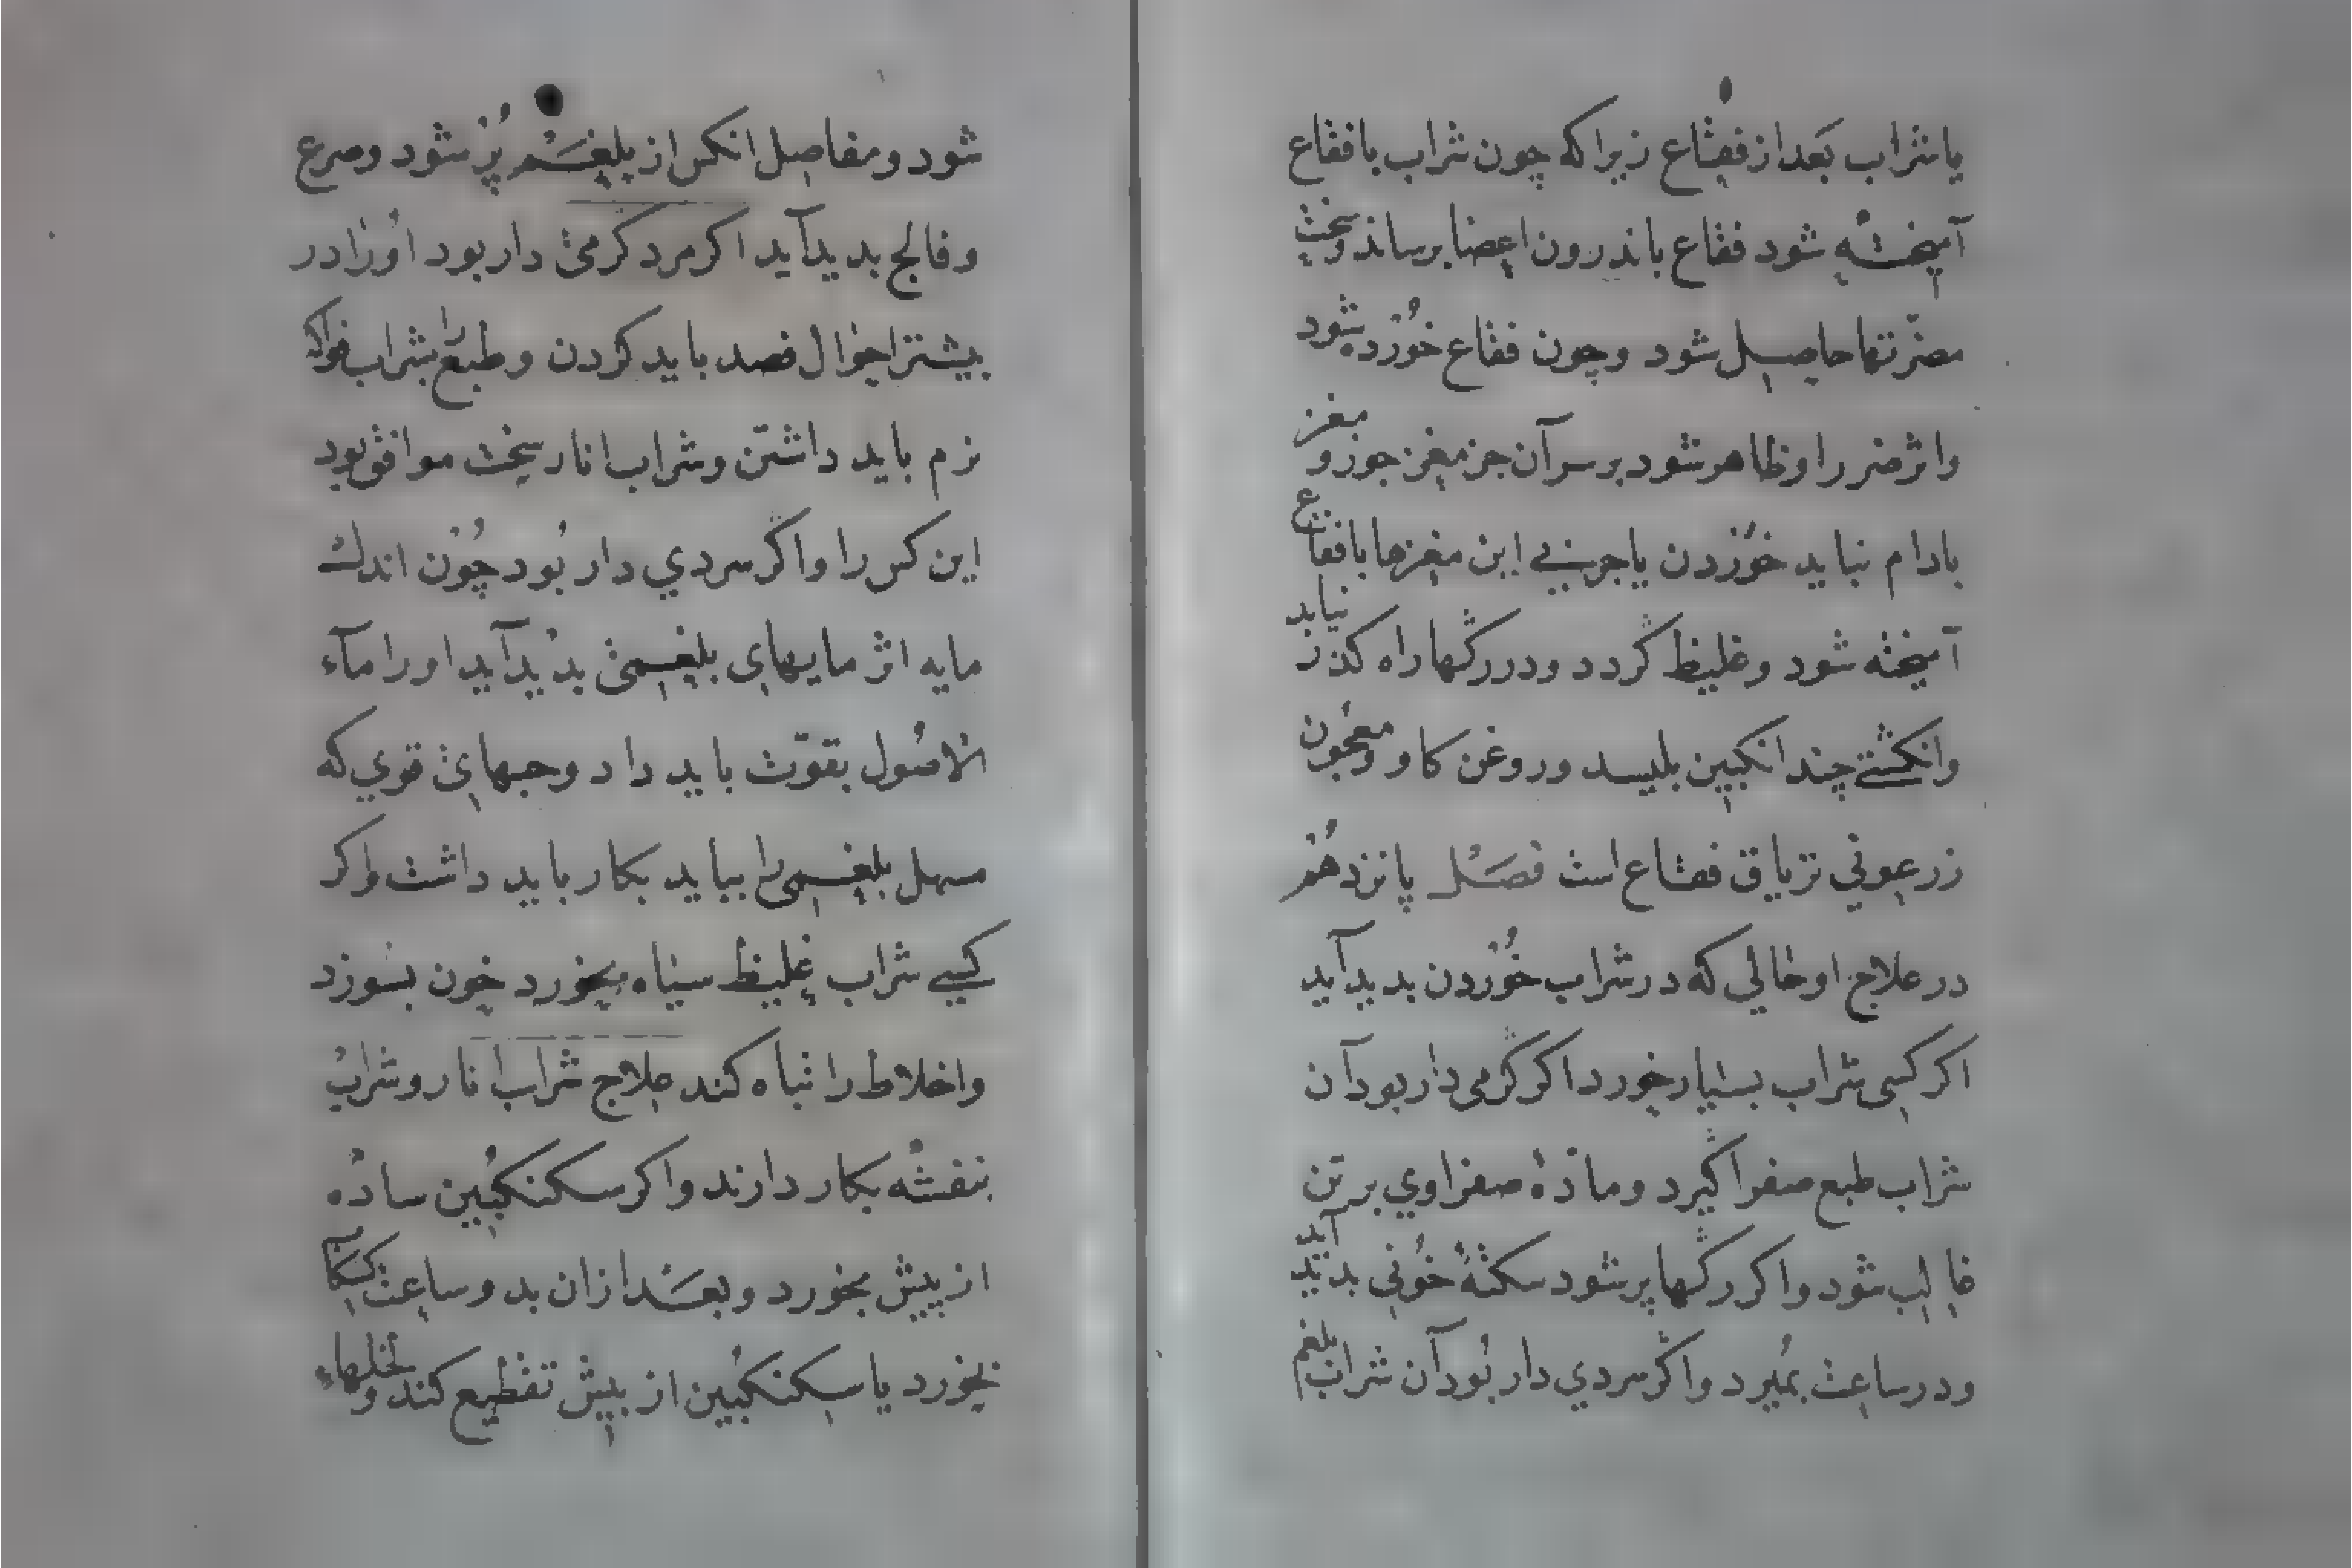 یا شراب بَعد از فقاع زیرا که چون شراب با فقاع
آمیخته شود فقاع باندرون اعضا برساند و سخت
مضرّتها حاصل شود و چون فقاع خُورده شود
و اثر ضرر او ظاهر شود بر سر آن جز مغز جوز و مغز
بادام نباید خُوردن یا چربی این مغزها با فقاع
آمیخته شود و غلیظ گردد و در رگها راه گذر نیابد
و انگشتی چند انگبین بلیسد و روغن کاو و معجون
زرعونی تریاق فقاع است فصل پانزدهُم
در علاج اوحالی که در شراب خُوردن بدید آید
اکر کسی شراب بسیار خورد اکر گرمی دار بود آن
شراب طبع صفرا گیرد و مادّهٔ صفراوي بر تن
غالب شود و اکر رگها پر شود سکتهٔ خُونی بدید آید
و در ساعت بمُیرد و اگر سردي دار بُود آن شراب بلغم
شود و مفاصل انکس از بلغَم پُر شود و صرع
و فالج بدید آید اکر مرد گرمی دار بود اورا در
بیشتر احوال فصد باید کردن و طبع را بشراب فواکه
نرم باید داشتن و شراب انار سخت موافق بود
این کس را و اگر سردي دار بُود چُون اندک
مایه اثر مایهای بلغمی بدید آید اورا ماء
الاصُول بقوّت باید داد و حبهای قوي که
مسهل بلغمی را بباید بکار باید داشت و اکر
کسی شراب غلیظ سیاه بخورد خون بسُوزد
و اخلاط را تباه کند علاج شراب انار و شراب
بنفشه بکار دارند و اکر سکنکبُین ساده
از پیش بخورد و بعَد ازان بدو ساعت کَشکاب
بخورد یا سکنکبُین از پیش تقطیع کند و لخلهاء